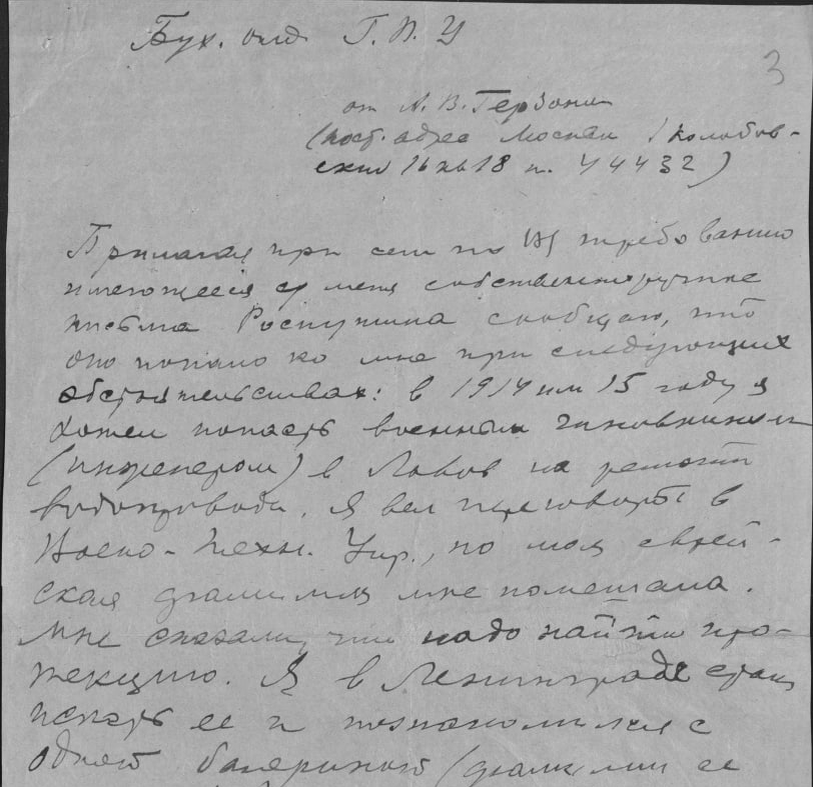 Бух. отд Г.П.У
3
от А. В. Гербони
(пост. адрес Москва / Колобов-
ский 16 кв 18 т. 44432)
Прилагая при сем по требованию
имеющееся у меня собственноручное
письмо Роспутина сообщаю, что
оно попало ко мне при следующих
обстоятельствах: в 1914 или 15 году я
хотел попасть военным чиновником
(инженером) в Львов на ремонт
водопровода. Я вел переговоры в
Воено-Техн. Упр., но моя еврей-
ская фамилия мне помешала.
Мне сказали, что надо найти про-
текцию. Я в Ленинграде стал
искать ее и познакомился с
одной балериной (фамилии ее